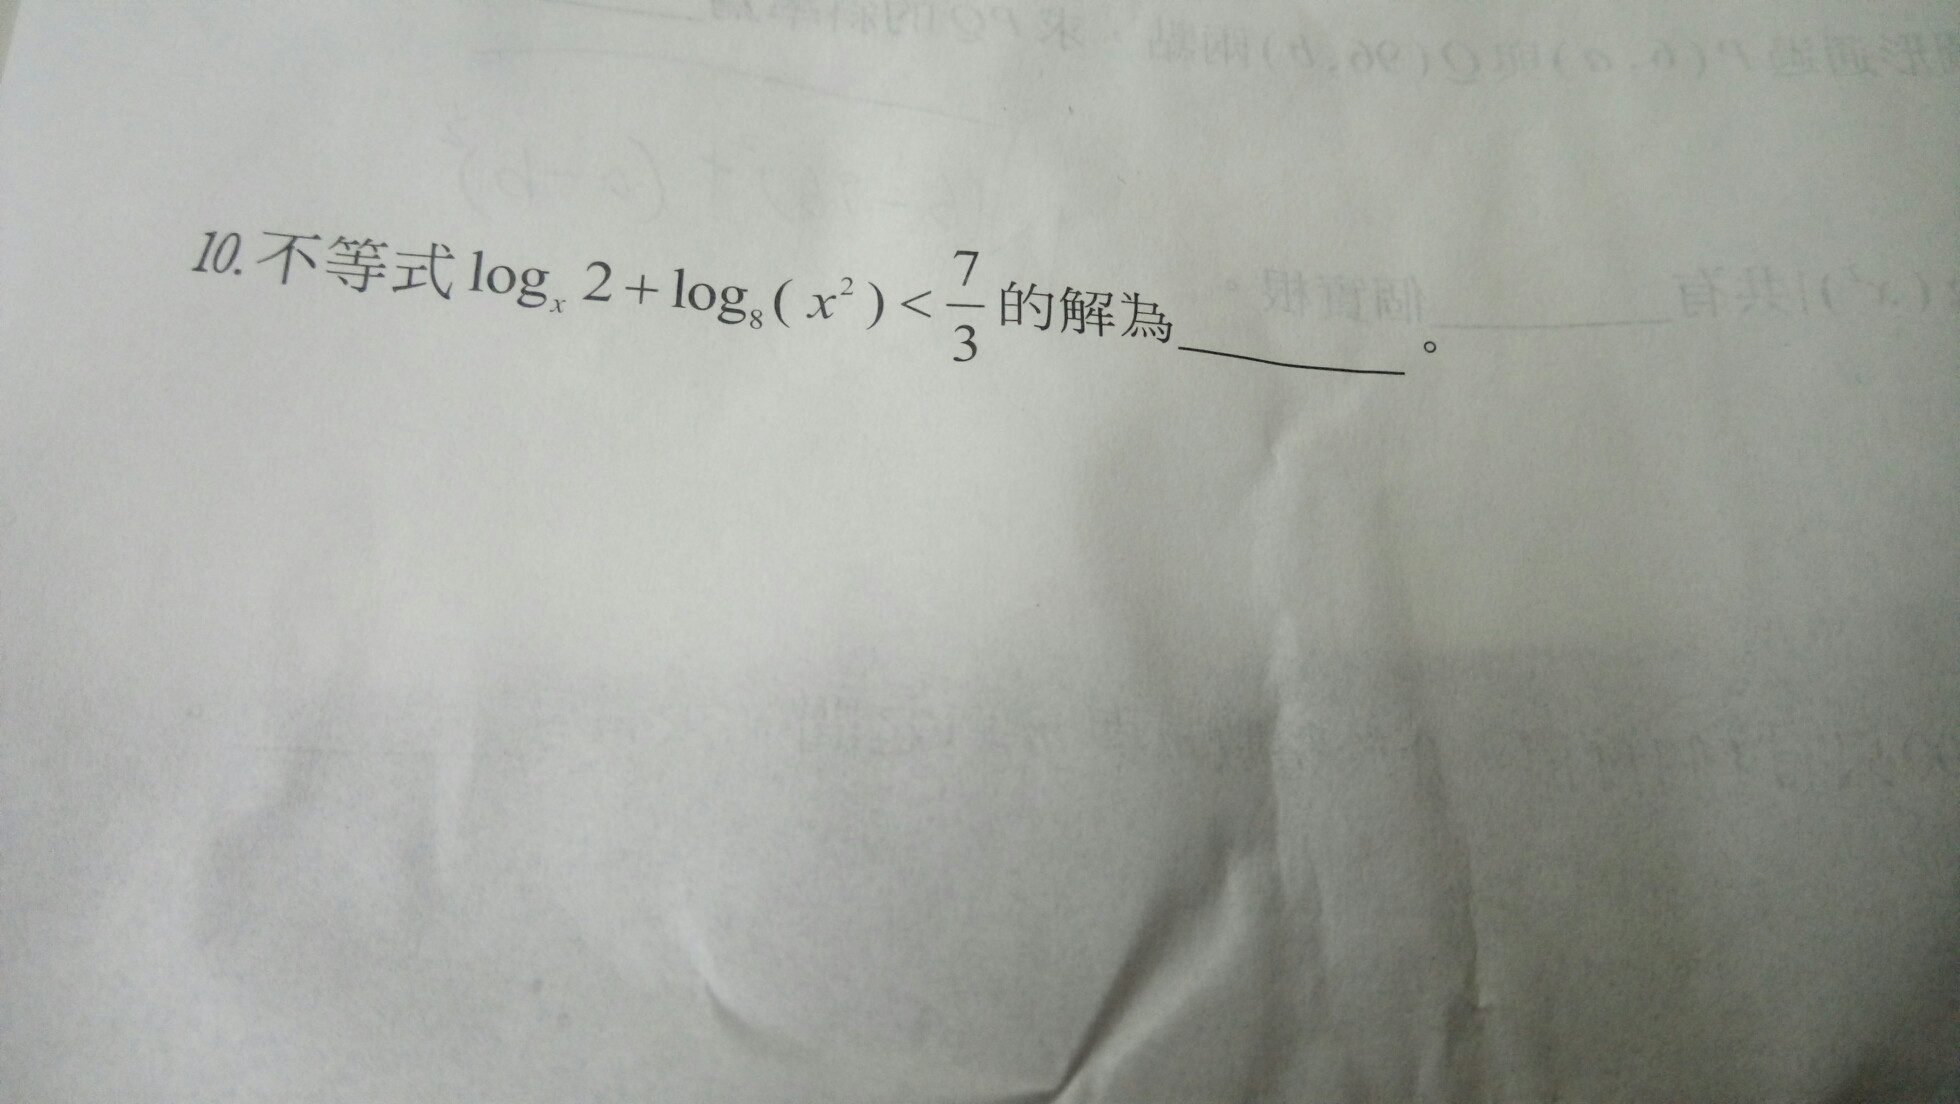 10. 不等式 logₓ 2 + log₈( x² ) < 7/3 的解為________。